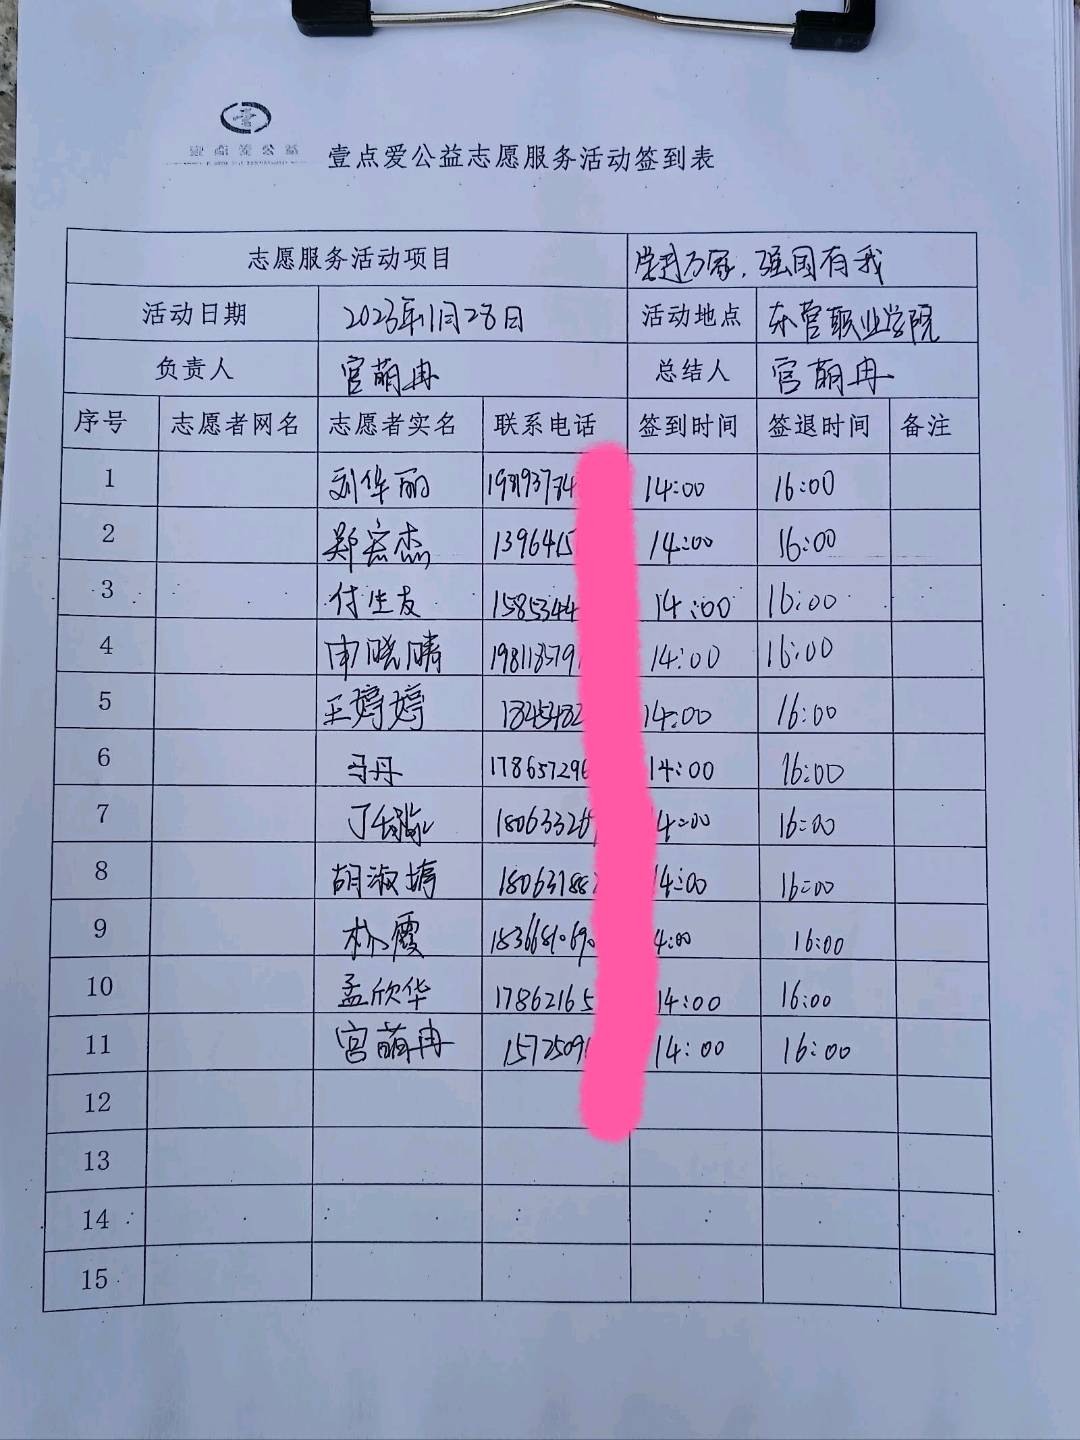 壹点爱公益
壹点爱公益志愿服务活动签到表
志愿服务活动项目 学进万家，强国有我
活动日期 2023年11月28日 活动地点 东营职业学院
负责人 宫萌冉 总结人 宫萌冉
序号 志愿者网名 志愿者实名 联系电话 签到时间 签退时间 备注
1 刘华丽 1981937 14:00 16:00
2 郑宏杰 1396415 14:00 16:00
3 付生友 1585344 14:00 16:00
4 申晓晴 198118579 14:00 16:00
5 王婷婷 1845482 14:00 16:00
6 马丹 178657296 14:00 16:00
7 丁 18063326 14:00 16:00
8 胡淑婷 18063788 14:00 16:00
9 霞 1836681069 4:00 16:00
10 孟欣华 17862165 14:00 16:00
11 宫萌冉 1572509 14:00 16:00
12
13
14
15